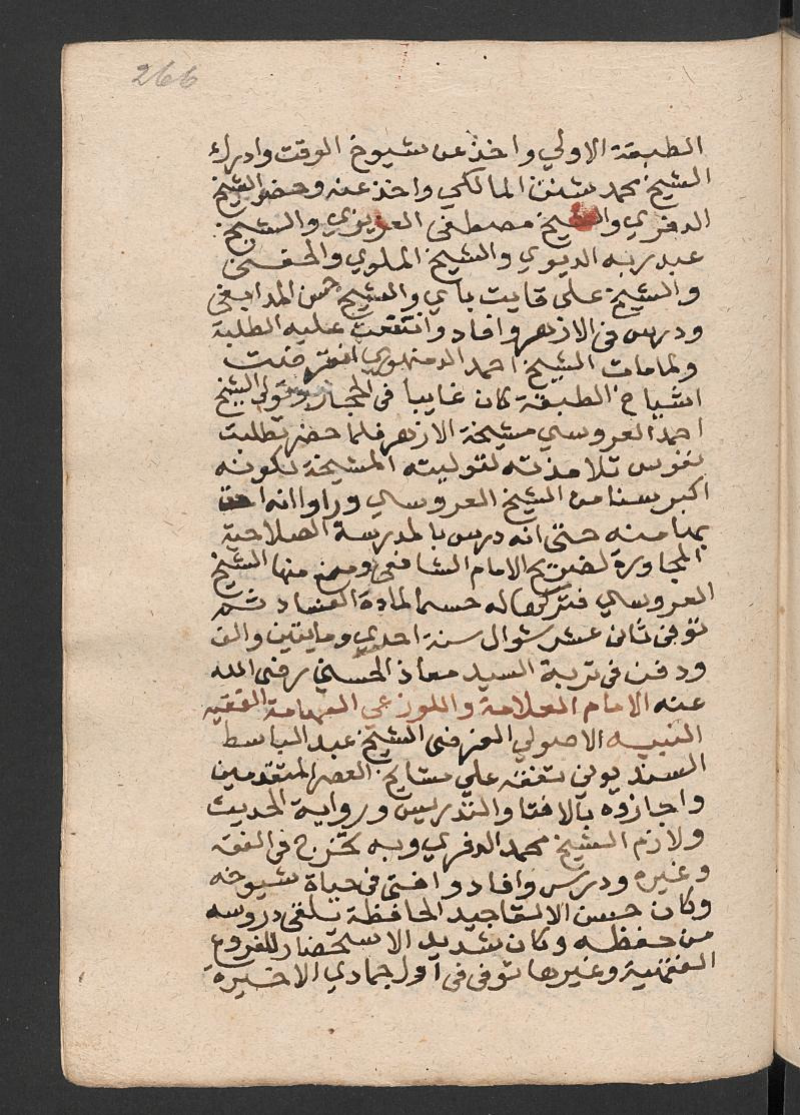 266
الطبقة الاولي واخذ عن شيوخ الوقت وادرك
الشيخ محمد شنن المالكي واخذ عنه وحضر الشيخ
الدفري والشيخ مصطفى العزيزي والشيخ
عبد ربه الديوي والشيخ الملوي والحفني
والشيخ علي قايت باي والشيخ حسن المدابغي
ودرس في الازهر وافاد وانتفعت عليه الطلبة
ولما مات الشيخ احمد الدمنهوري انقرضت
اشياخ الطبقة كان غايبا في الحجاز وتولي الشيخ
احمد العروسي مشيخة الازهر فلما حضر تطلبت
نفوس تلامذته لتوليته المشيخة لكونه
اكبر سنا من الشيخ العروسي وراوا انه احق
بها منه حتى انه درس بالمدرسة الصلاحية
المجاورة لضريح الامام الشافعي ومنع منها الشيخ
العروسي فتركها له حسما لمادة الفساد ثم
توفي ثاني عشر شوال سنة احدي ومايتين والف
ودفن في تربة السيد معاذ الحسني رضى الله
عنه الامام العلامة واللوزعي الفهامة الفقيه
النبيه الاصولي الفرضى الشيخ عبد الباسط
السنديوني تفقه علي مشايخ العصر المتقدمين
واجازوه بالافتا والتدريس ورواية الحديث
ولازم الشيخ محمد الدفري وبه تخرج في الفقه
وغيره ودرس وافاد وافتى في حياة شيوخه
وكان حسن الالقا جيد الحافظة يلقى دروسه
من حفظه وكان شديد الاستحضار للفروع
الفقهية وغيرها توفى في اول جمادي الاخيرة